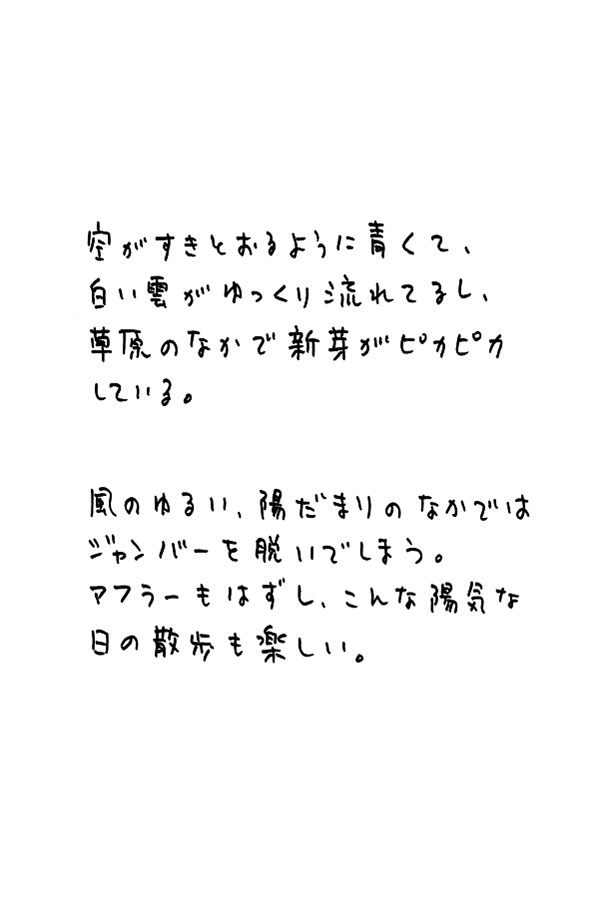 空がすきとおるように青くて、
白い雲がゆっくり流れてるし、
草原のなかで新芽がピカピカ
している。
風のゆるい、陽だまりのなかでは
ジャンバーを脱いでしまう。
マフラーもはずし、こんな陽気な
日の散歩も楽しい。